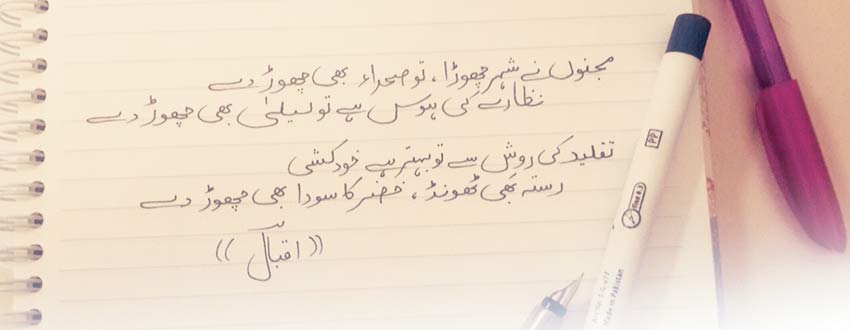 مجنوں نے شہر چھوڑا، تو صحراء بھی چھوڑ دے
نظارے کی ہوس ہے تو لیلیٰ بھی چھوڑ دے
تقلید کی روش سے تو بہتر ہے خودکشی
رستہ بھی ڈھونڈ، خضر کا سودا بھی چھوڑ دے
((اقبالؔ))
PP
Made in Pakistan